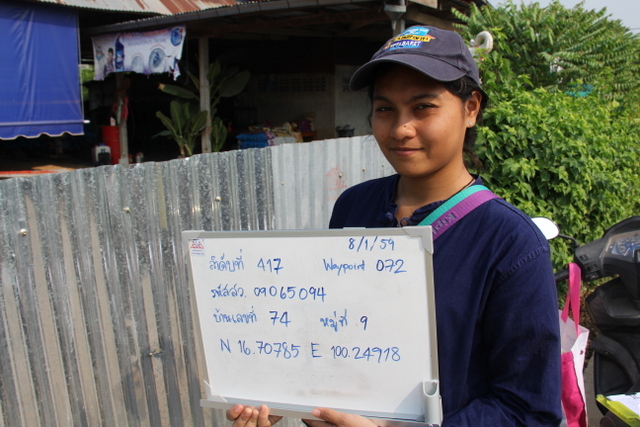 8/1/59
ลำดับที่ 417 Waypoint 072
รหัสสว. 09065094
บ้านเลขที่ 74 หมู่ที่ 9
N 16.70785 E 100.24918